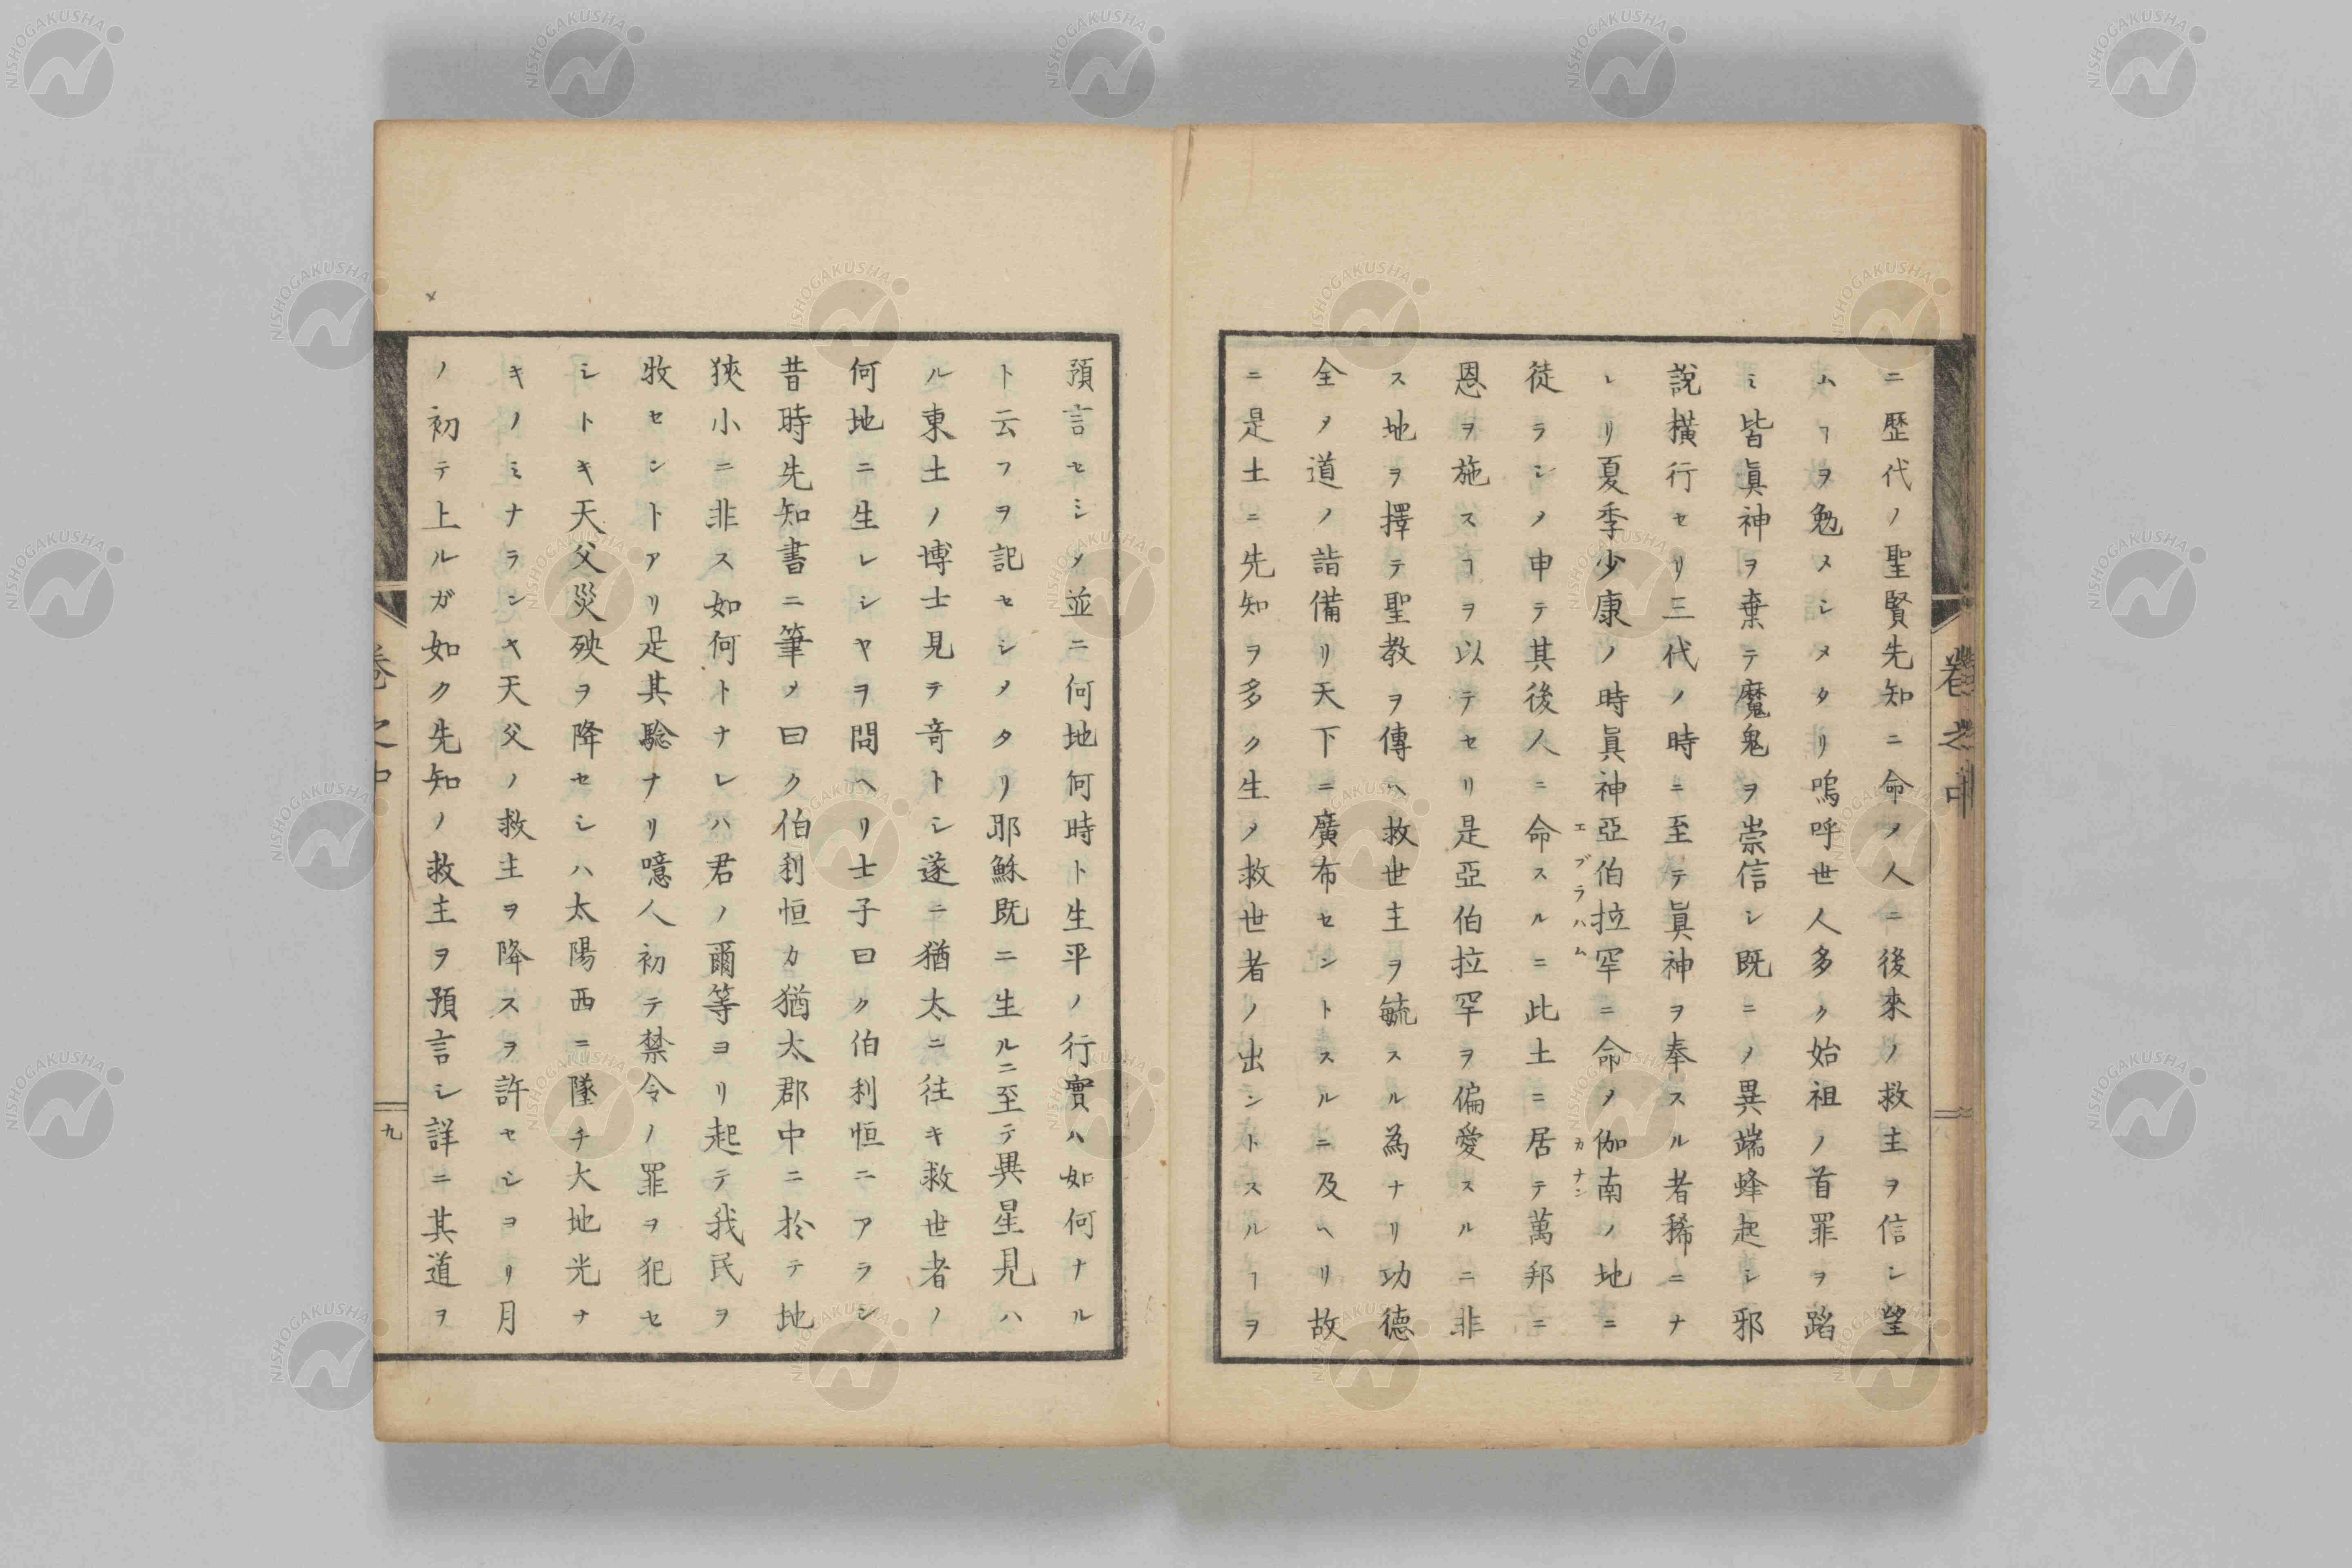 ニ歴代ノ聖賢先知ニ命ノ人ニ後來ノ救主ヲ信シ望
ムヿヲ勉メシメタリ嗚呼世人多ク始祖ノ首罪ヲ蹈
ミ皆眞神ヲ棄テ魔鬼ヲ崇信シ既ニノ異端蜂起シ邪
說橫行セリ三代ノ時ニ至テ眞神ヲ奉スル者稀ニナ
レリ夏季少康ノ時眞神亞伯拉罕ニ命ノ伽南ノ地ニ
エブラハム
カナン
徒ラシノ申テ其後人ニ命スルニ此土ニ居テ萬邦ニ
恩ヲ施スヿヲ以テセリ是亞伯拉罕ヲ偏愛スルニ非
ス地ヲ擇テ聖教ヲ傳ヘ救世主ヲ毓スル為ナリ功德
全ノ道ノ詣備リ天下ニ廣布セントスルニ及ヘリ故
ニ是土ニ先知ヲ多ク生ノ救世者ノ出ントスルヿヲ
卷之中
預言セシメ並ニ何地何時ト生平ノ行實ハ如何ナル
ト云フヲ記セシメタリ耶穌既ニ生ルニ至テ異星見ハ
ル東土ノ博士見テ竒トシ遂ニ猶太ニ往キ救世者ノ
何地ニ生レシヤヲ問ヘリ士子曰ク伯利恒ニアラン
昔時先知書ニ筆ノ曰ク伯利恒カ猶太郡中ニ於テ地
狹小ニ非ス如何トナレハ君ノ爾等ヨリ起テ我民ヲ
牧セントアリ是其驗ナリ噫人初テ禁令ノ罪ヲ犯セ
シトキ天父災殃ヲ降セシハ太陽西ニ墜チ大地光ナ
キノミナランヤ天父ノ救主ヲ降スヲ許セシヨリ月
ノ初テ上ルガ如ク先知ノ救主ヲ預言シ詳ニ其道ヲ
卷之中
九
NISHOGAKUSHA